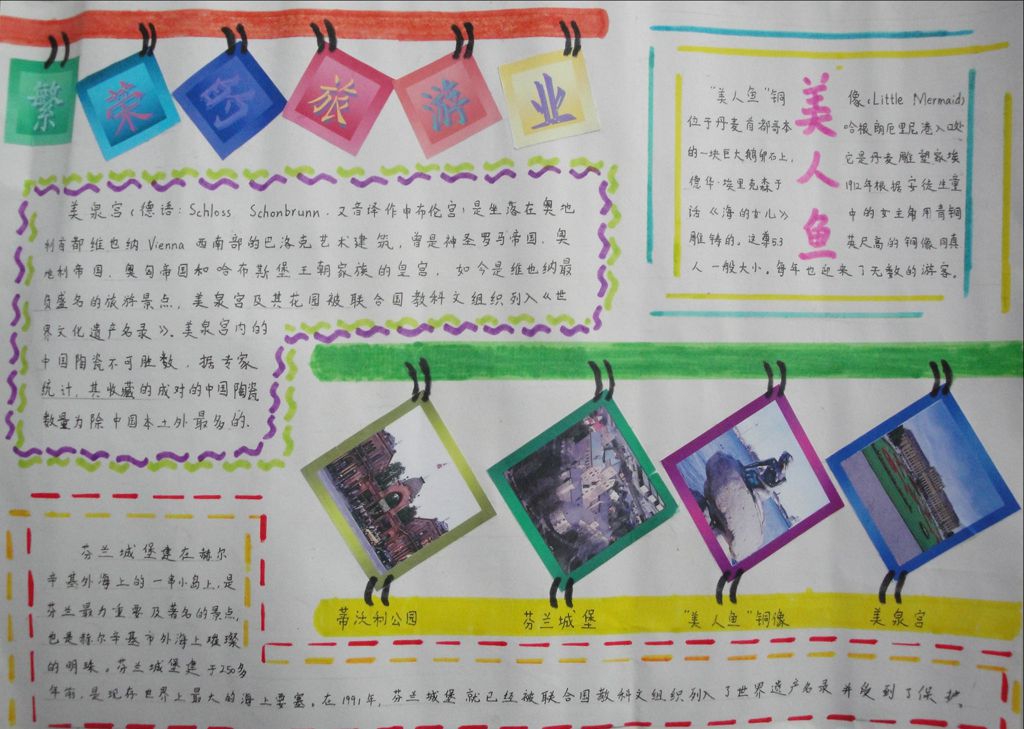 繁荣的旅游业
美泉宫(德语:Schloss Schonbrunn.又音译作申布伦宫)是坐落在奥地
利首都维也纳Vienna西南部的巴洛克艺术建筑,曾是神圣罗马帝国、奥
地利帝国、奥匈帝国和哈布斯堡王朝家族的皇宫,如今是维也纳最
负盛名的旅游景点,美泉宫及其花园被联合国教科文组织列入《世
界文化遗产名录》。美泉宫内的
中国陶瓷不可胜数,据专家
统计,其收藏的成对的中国陶瓷
数量为除中国本土外最多的.
美人鱼
"美人鱼"铜像(Little Mermaid)
位于丹麦首都哥本哈根朗厄里尼港入口处
的一块巨大鹅卵石上,它是丹麦雕塑家埃
德华·埃里克森于1912年根据安徒生童
话《海的女儿》中的女主角用青铜
雕铸的。这尊5.3英尺高的铜像同真
人一般大小。每年也迎来了无数的游客。
蒂沃利公园 芬兰城堡 "美人鱼"铜像 美泉宫
芬兰城堡建在赫尔
辛基外海上的一串小岛上,是
芬兰最为重要及著名的景点,
也是赫尔辛基市外海上璀璨
的明珠。芬兰城堡建于250多
年前,是现存世界上最大的海上要塞。在1991年,芬兰城堡就已经被联合国教科文组织列入了世界遗产名录并受到了保护。